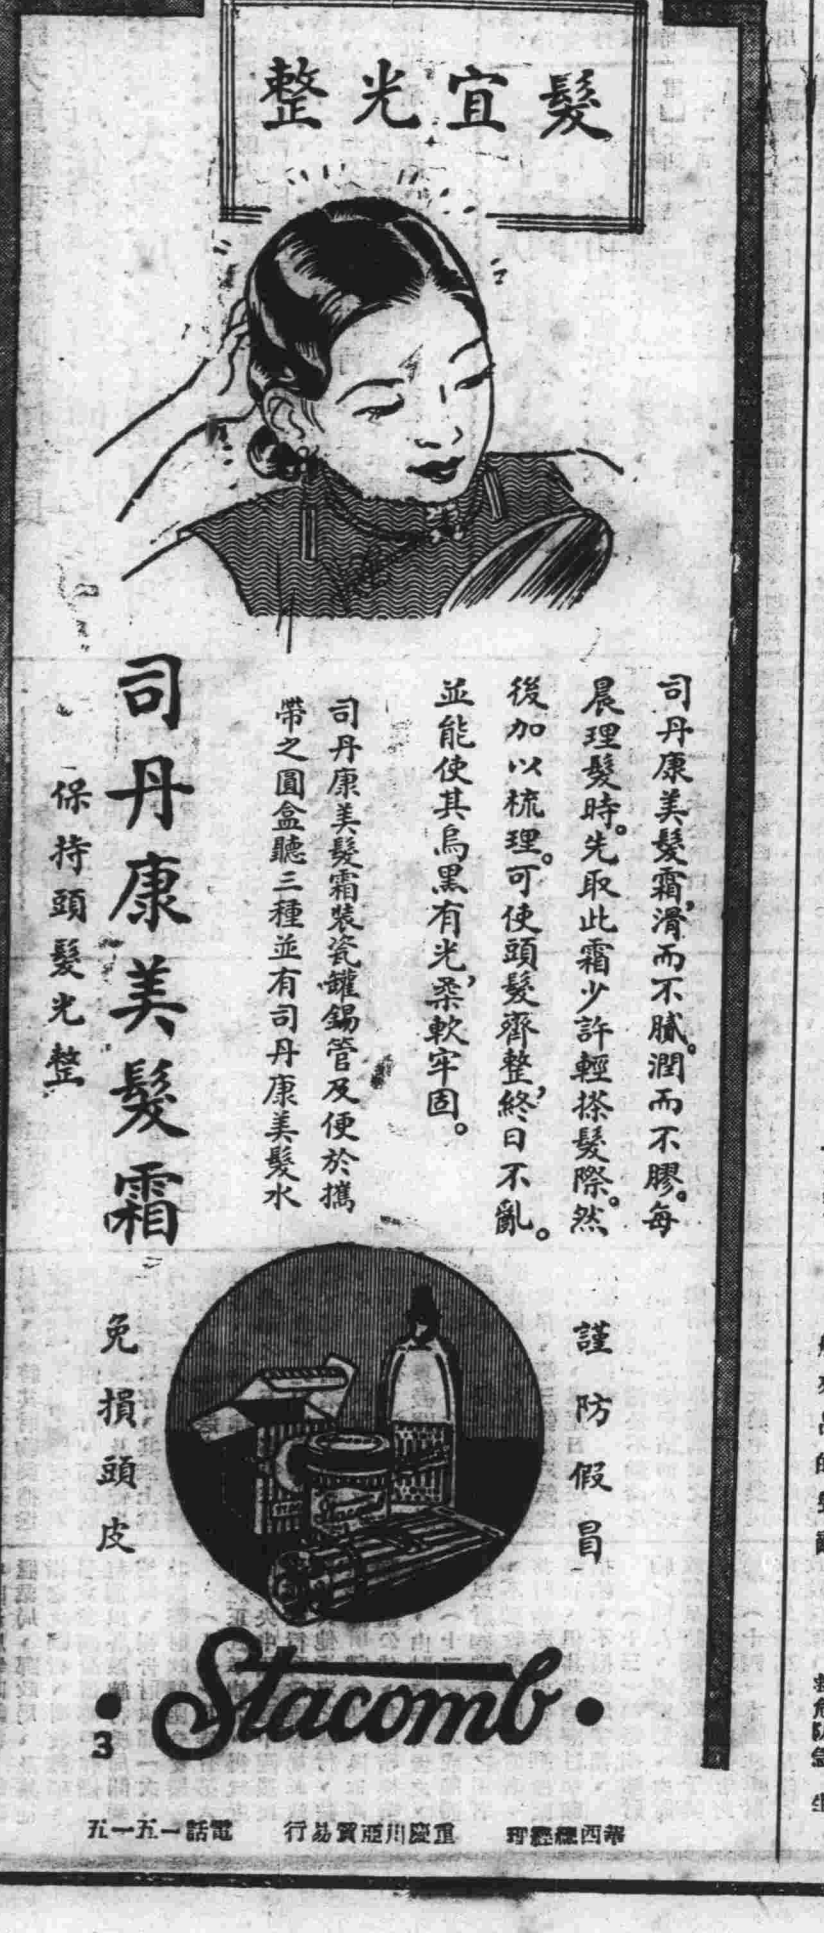 髮宜光整
司丹康美髮霜，滑而不膩。潤而不膠。每
晨理髮時。先取此霜少許輕搽髮際。然
後加以梳理。可使頭髮齊整，終日不亂。
並能使其烏黑有光，柔軟牢固。
司丹康美髮霜裝瓷罐錫管及便於攜
帶之圓盒聽三種並有司丹康美髮水
司丹康美髮霜
保持頭髮光整
謹防假冒
免損頭皮
Stacomb
3
華西總經理 重慶川亞貿易行 電話一五一五